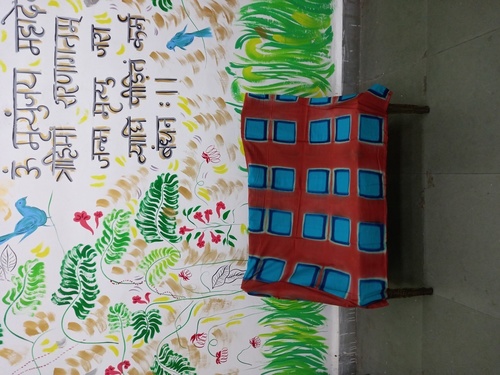 ॐ मृत्युंजय महादे
त्राहिमां शरणागतम्
जन्म मृत्यु जरा
व्याधि पीड़ितं कर्म
बंधन : ।।